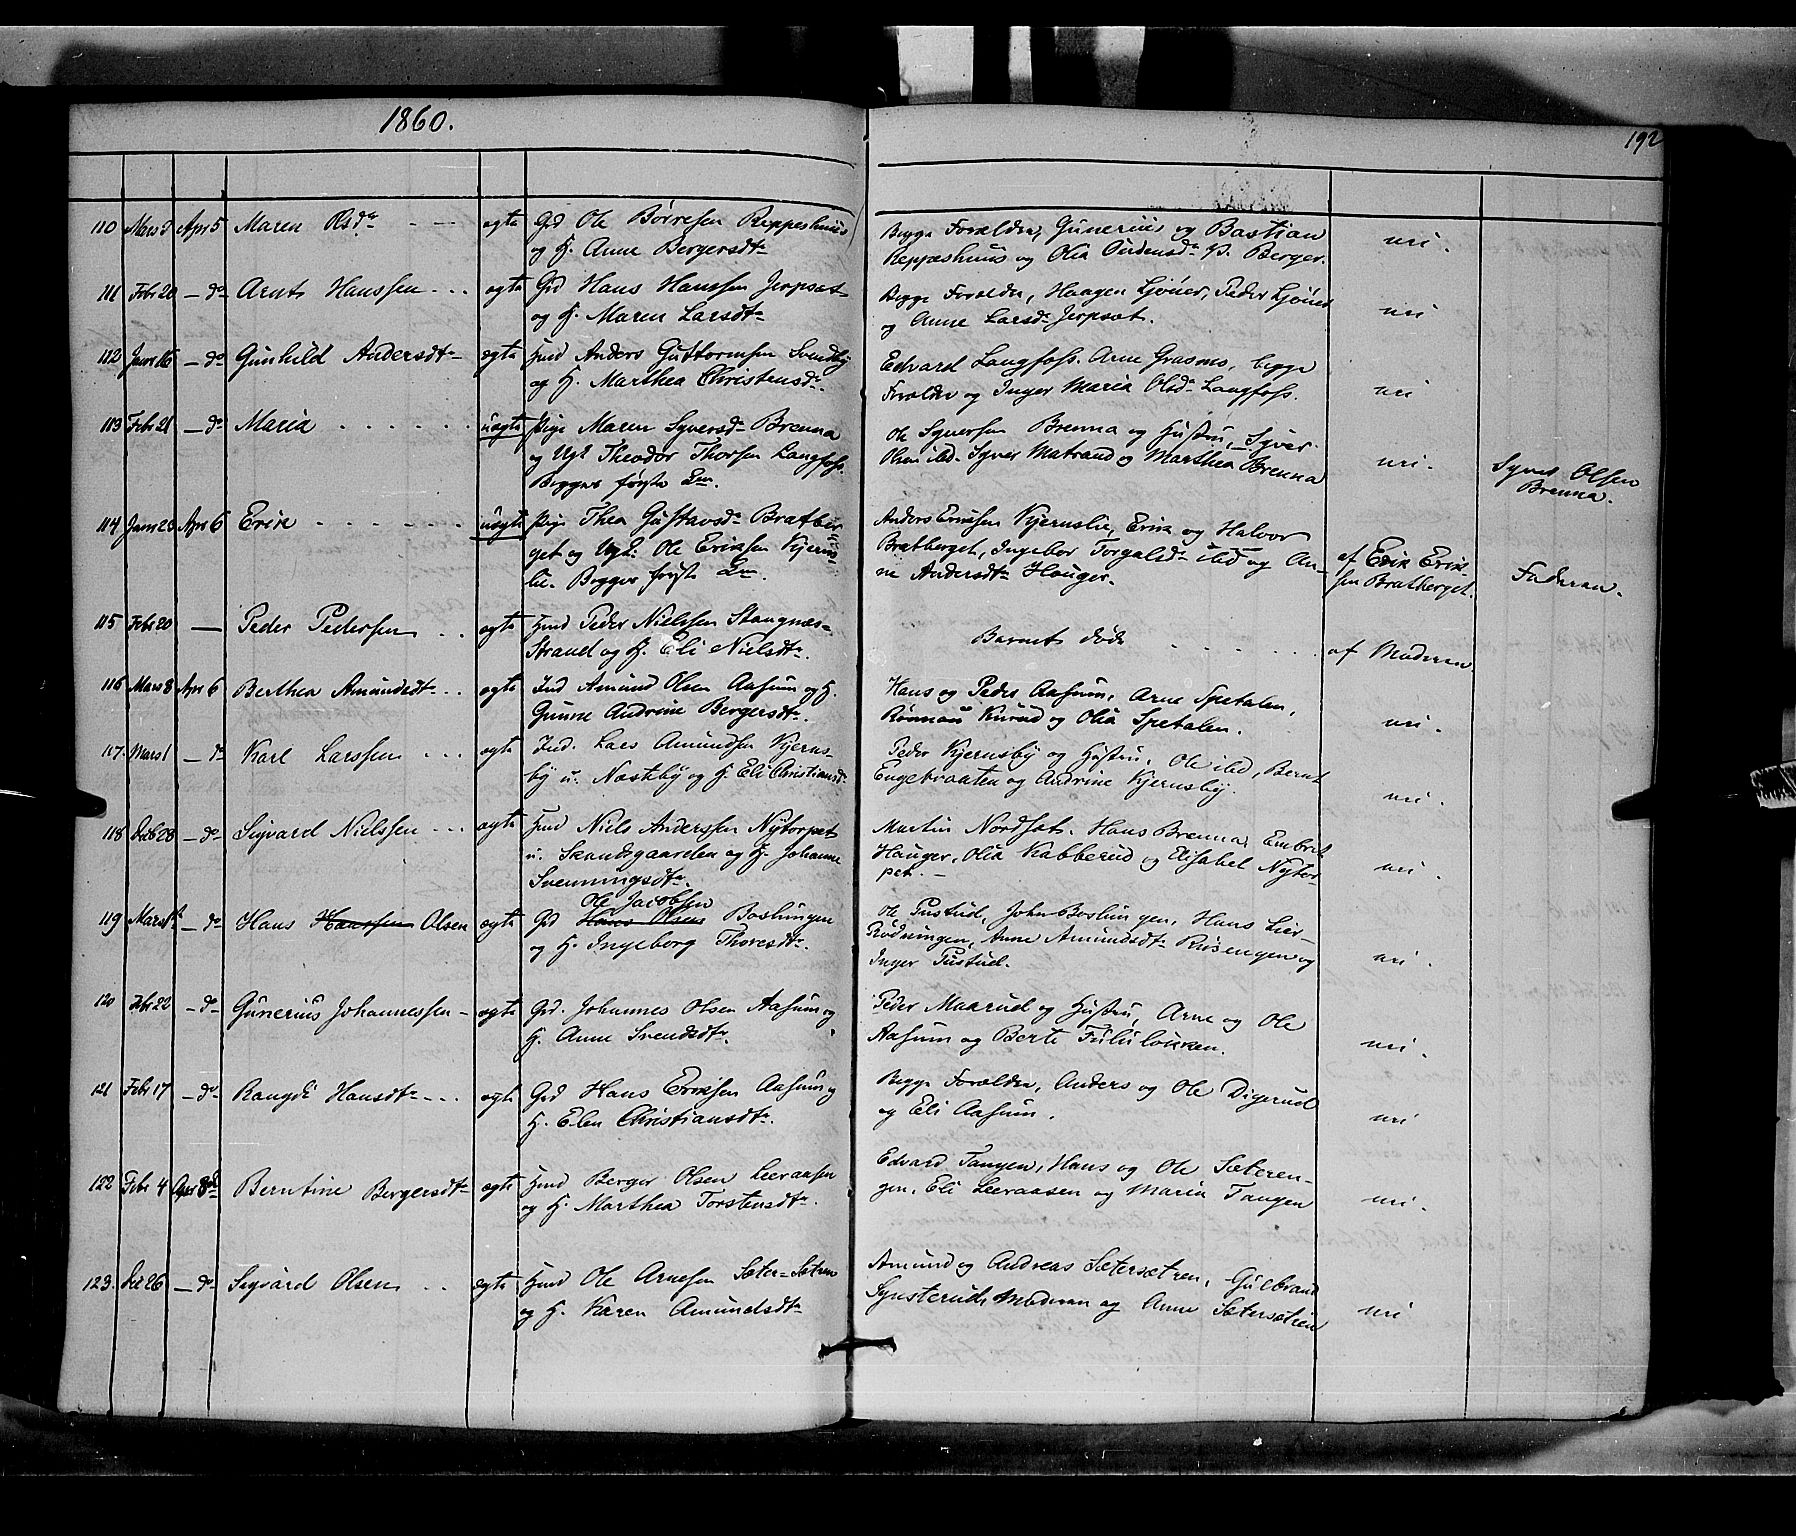 1860.
192
110 Mars 9 Apr 5 Maren Olsdr ægte Grd Ole Börresen Reppeshuus
og H. Anne Bergersdtr
Begge Forældre, Gunerius og Bastian
Reppeshuus og Olia Oudensdr P. Berger.
nei.
111 Febr 20 - do Arnt Hanssen ægte Grd Hans Hanssen Jerpsæt
og H. Maren Larsdtr
Begge Forældre, Haagen Ljöner, Peder Ljöner
og Anne Larsdr Jerpsæt.
nei
112 Janr 16 - do Gunhild Andersdtr ægte Huud Anders Guttormsen Svendsby
og H. Marthea Christensdr
Edvard Langfoss. Arne Grasmo, begge
Forældre og Inger Maria Olsdr Langfoss.
nei
113 Febr 21 - do Maria uægte Pige Maren Syversdr Brenna
og Ugk Theodor Thorsen Langfoss.
Begges første Lm.
Ole Syversen Brenna og Hustru, Syver
Olsen ibd. Syver Matrand og Marthea Brenna
nei.
Syver Olsen
Brenna.
114 Janr 20 Apr 6 Erik uægte Pige Thea Gustavsdr Bratber
get og Ugk: Ole Eriksen Kjerns
lie. Begges første Lm.
Anders Eriksen Kjernslie, Erik og Halvor
Bratberget, Ingebor Torgalsdr ibd og An-
ne Andersdtr Hauger.
af Erik Erik-
sen Bratberget.
Faderen.
115 Febr 20 — Peder Pedersen ægte Huud Peder Nielssen Stangnæs-
Strand og H. Eli Nielsdtr.
Barnets död
af Moderen
116 Mars 8 Apr 6 Berthea Amundsdtr ægte Ind Amund Olsen Aasum og H.
Gunne Andrine Bergersdtr.
Hans og Peder Aasum, Arne Spetalen,
Rönnau Kurud og Olia Spetalen.
nei.
117. Mars 1 - do Karl Larssen ægte Ind. Lars Amundsen Kjerns-
by u. Næsteby og H. Eli Christiansdtr
Peder Kjernsby og Hustru, Ole ibd, Bernt
Engebraaten og Andrine Kjernsby.
nei.
118 28 - do Sigvard Nielssen ægte Huud Niels Anderssen Nytorpet
u. Skandsgaarden og H. Johanne
Svenningsdtr.
Martin Nordsæt. Hans Brenna, Embret
Hauger, Olia Kabberud og Elisabet Nytor-
pet.
nei.
119 Mars - do Hans Hanssen Olsen ægte Grd Hans Olsen Ole Jacobsen Boslungen
og H. Ingeborg Thoresdtr.
Ole Pustud, John Boslungen, Hans Lier-
Rödningen, Anne Amundsdtr Rusengen og
Inger Pustud.
nei.
120 Febr 22 - do Gunerius Johannessen ægte Grd. Johannes Olsen Aasum og
H. Anne Svendsdtr.
Peder Maarud og Hustru, Arne og Ole
Aasum og Berte Fululökken.
nei.
121 Febr 17 - do Rangdi Hansdtr ægte Grd Hans Eriksen Aasum og
H. Elen Christiansdtr.
Begge Forældre, Anders og Ole Digerud
og Eli Aasum.
nei
122 Febr 4 Apr 8 Berntine Bergersdtr ægte Huud Berger Olsen Leeraasen
og H. Marthea Torstensdtr.
Edvard Tangen, Hans og Ole Sæteren-
gen, Eli Leeraasen og Maria Tangen
nei.
123. 26 - do Sigvard Olsen ægte Huud Ole Arnesen Sæter-Sætren
og H. Karen Amundsdtr
Amund og Andreas Sætersætren, Gulbrand
Synsterud, Moderen og Anne Sætersætren
nei